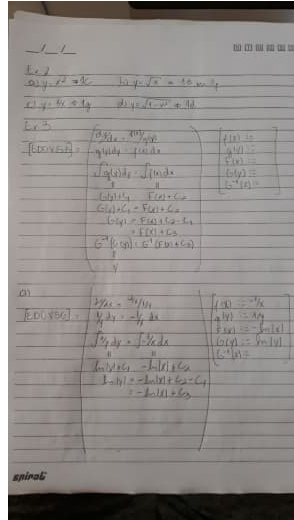 __/__/__
Ex 2
Ex 3
[EDOVSG] =
dy/dx = f(x)/g(y)
g(y)dy = f(x)dx
∫g(y)dy = ∫f(x)dx
G(y)+C₁ F(x)+C₂
G(y)+C₁ = F(x)+C₂
G(y) = F(x)+C₂-C₁
= F(x)+C₃
G⁻¹(G(y)) = G⁻¹(F(x)+C₃)
y
f(x) :=
g(y) :=
F(x) :=
G(y) :=
G⁻¹(x) :=
a)
[EDOVSG] =
1/y dy = -1/x dx
∫1/y dy = ∫-1/x dx
ln|y|+C₁ -ln|x|+C₂
ln|y| = -ln|x|+C₂-C₁
= -ln|x|+C₃
f(x) := -1/x
g(y) := 1/y
F(x) := -ln|x|
G(y) := ln|y|
G⁻¹(x) :=
spiral